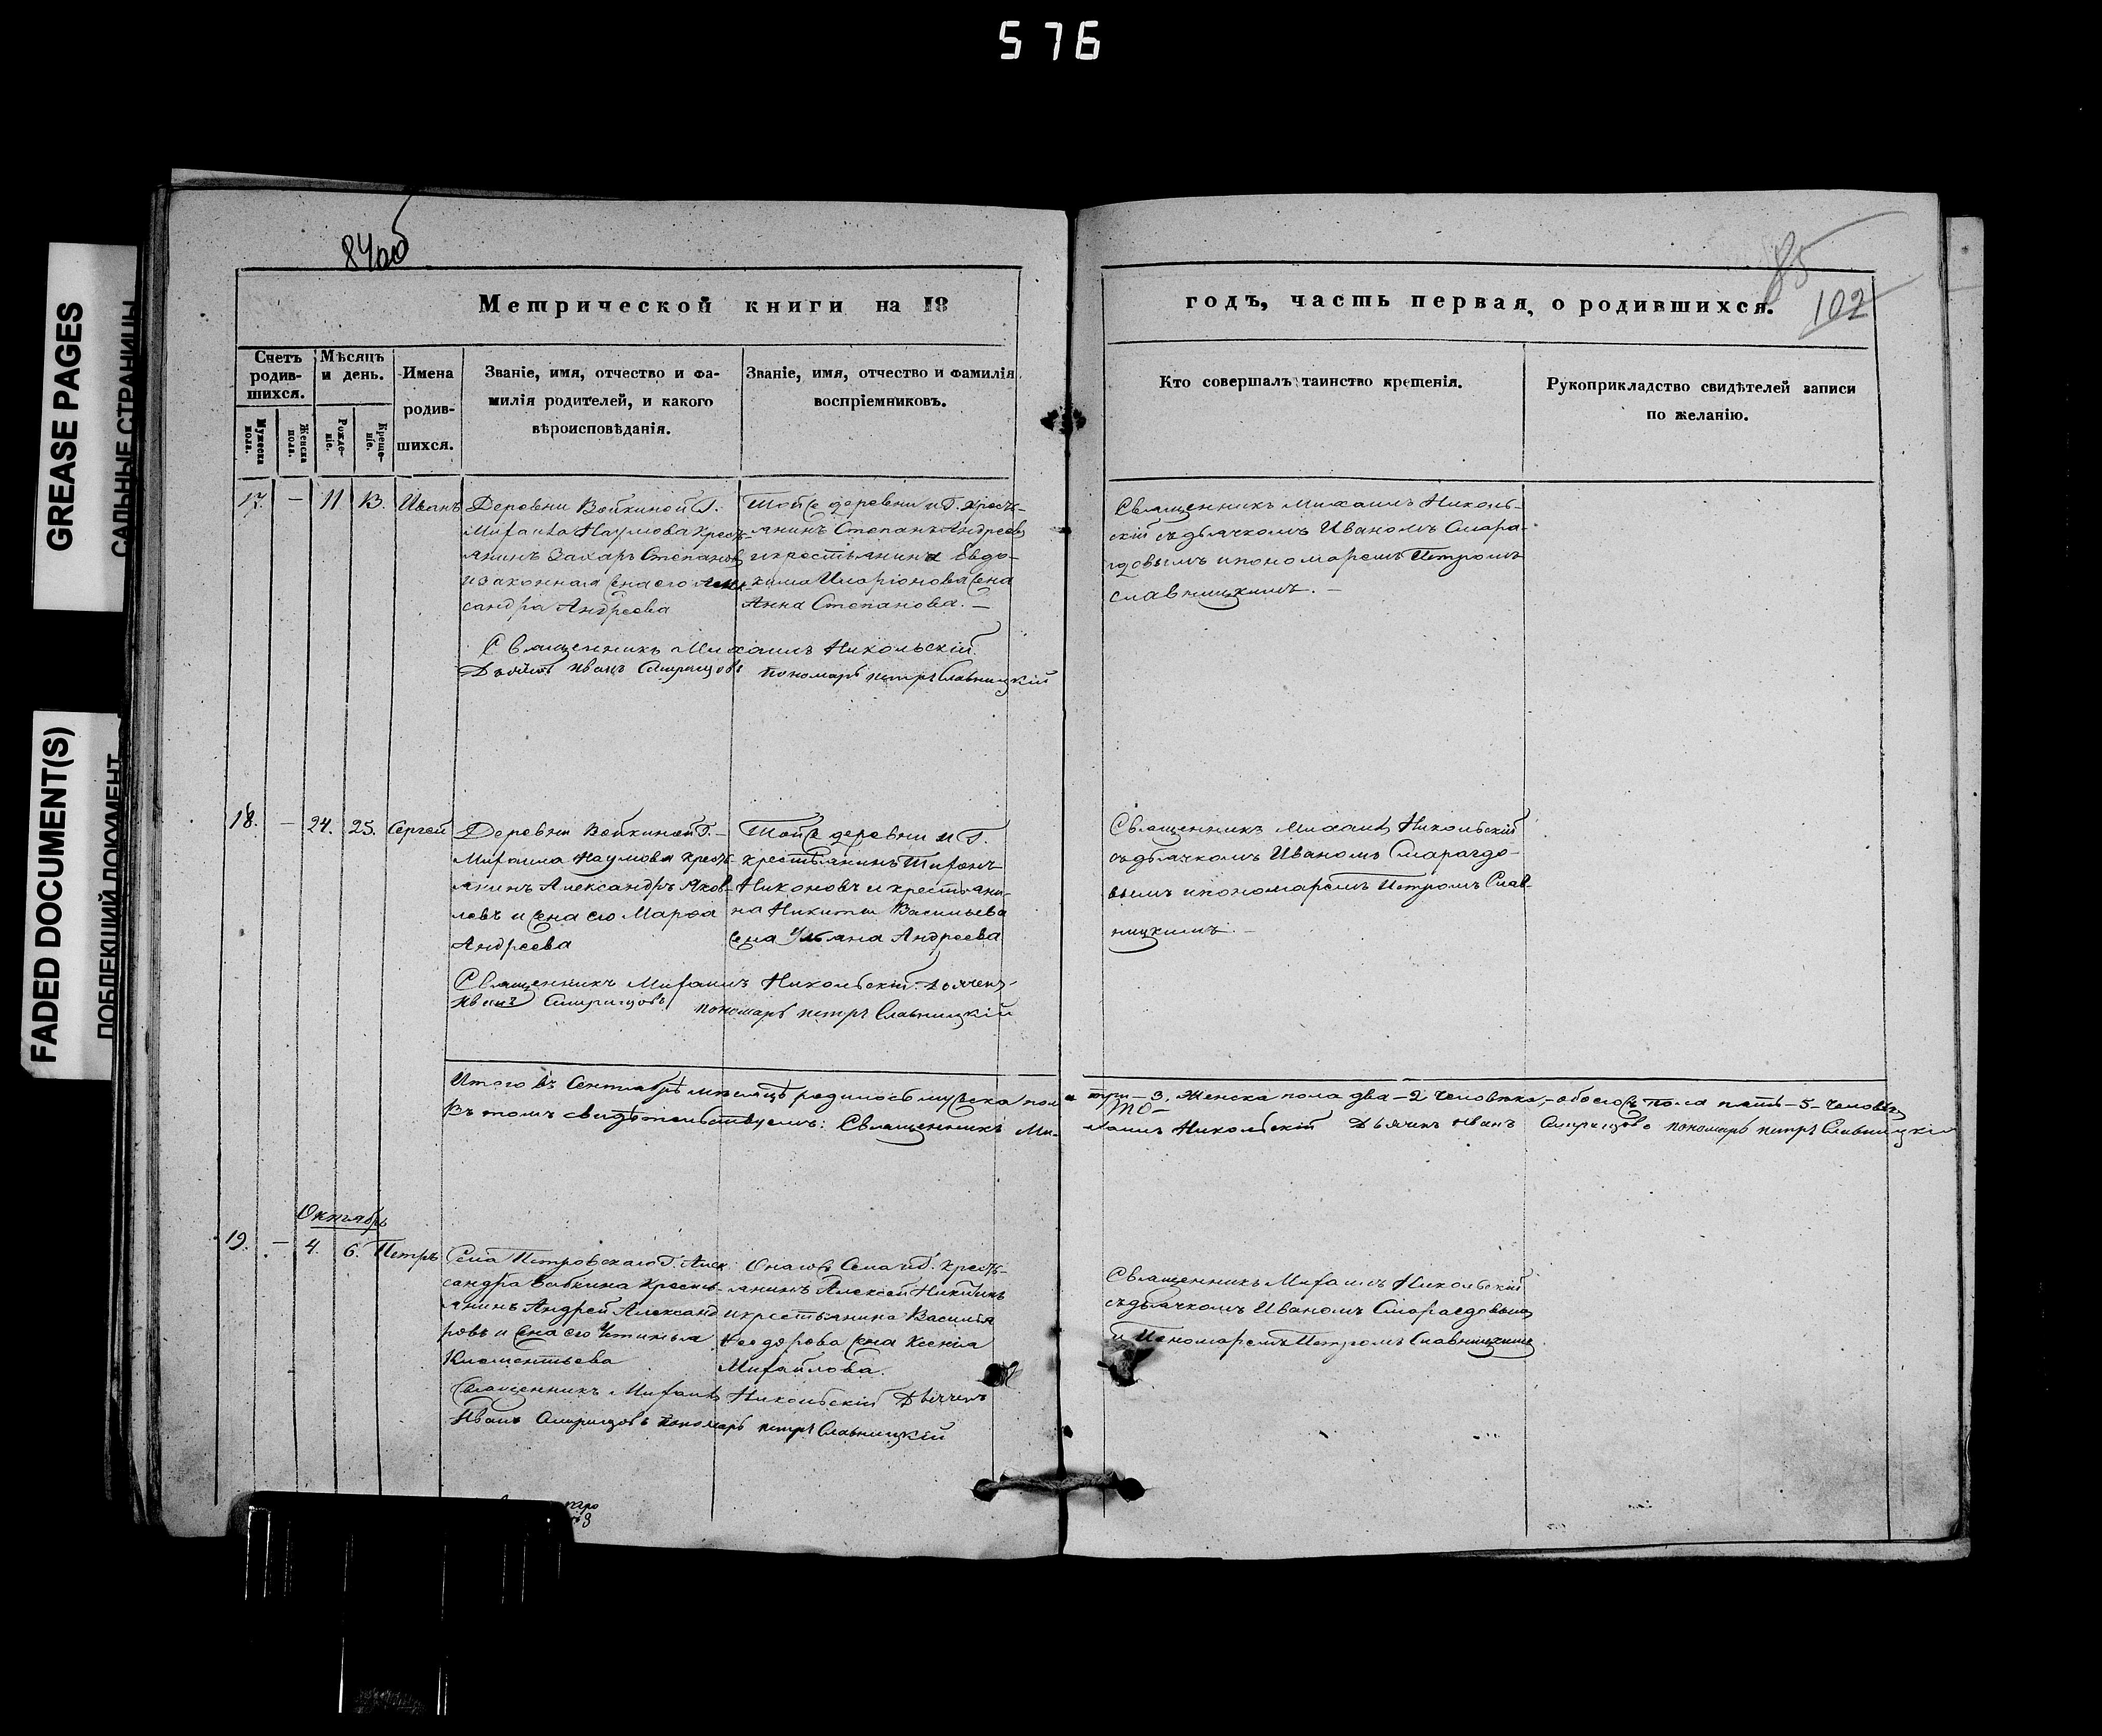 576
GREASE PAGES
САЛЬНЫЕ СТРАНИЦЫ
FADED DOCUMENT(S)
ПОБЛЕКШИЙ ДОКУМЕНТ
84об
85
102
Метрической книги на 18
годъ, часть первая, о родившихся.
Счетъ родившихся.
Мѣсяцъ и день.
Имена родившихся.
Званіе, имя, отчество и фамилія родителей, и какого вѣроисповѣданія.
Званіе, имя, отчество и фамилія воспріемниковъ.
Кто совершалъ таинство крещенія.
Рукоприкладство свидѣтелей записи по желанію.
Мужеска пола.
Женска пола.
Рожденіе.
Крещеніе.
17. — 11 13. Иванъ
Деревни Войкиной Г.
Михаила Наумова крест-
янинъ Захаръ Степановъ
и законная жена его Алек-
сандра Андреева
Тойже деревни и Г. крест-
янинъ Степанъ Андреевъ
и крестьянина Евдо-
кима Иларіонова жена
Анна Степанова. —
Священникъ Михаилъ Николь-
скій съ дьячкомъ Иваномъ Смара-
гдовымъ и пономаремъ Петромъ
Славницкимъ. —
Священникъ Михаилъ Никольскій
Дьячекъ Иванъ Смарагдовъ пономарь Петръ Славницкій
18. — 24. 25. Сергей
Деревни Войкиной Г. —
Михаила Наумова крест-
янинъ Александръ Яков-
левъ и жена его Марфа
Андреева
Тойже деревни и Г.
крестьянинъ Тихонъ
Никоновъ и крестьяни-
на Никиты Васильева
жена Ульяна Андреева
Священникъ Михаилъ Никольскій
съ дьячкомъ Иваномъ Смарагдо-
вымъ и пономаремъ Петромъ Слав-
ницкимъ. —
Священникъ Михаилъ Никольскій Дьячекъ
Иванъ Смарагдовъ пономарь Петръ Славницкій
Итого въ Сентябрѣ мѣсяцѣ родилось мужеска пола три — 3. Женска пола два — 2 человѣка, — обоего пола пять — 5 — человѣкъ
Въ томъ свидѣтельствуемъ: Священникъ Михаилъ Никольскій Дьячекъ Иванъ Смарагдовъ пономарь Петръ Славницкій
Октябрь
19. — 4. 6. Петръ
Села Петровскаго Г. Алек-
сандра Бабкина крест-
янинъ Андрей Александ-
ровъ и жена его Устинья
Клементьева
Онагожъ Села и Г. крест-
янинъ Алексей Никитинъ
и крестьянина Василія
Феодорова жена Ксенія
Михайлова.
Священникъ Михаилъ Никольскій
съ дьячкомъ Иваномъ Смарагдовымъ
и Пономаремъ Петромъ Славницкимъ.
Священникъ Михаилъ Никольскій Дьячекъ
Иванъ Смарагдовъ пономарь Петръ Славницкій